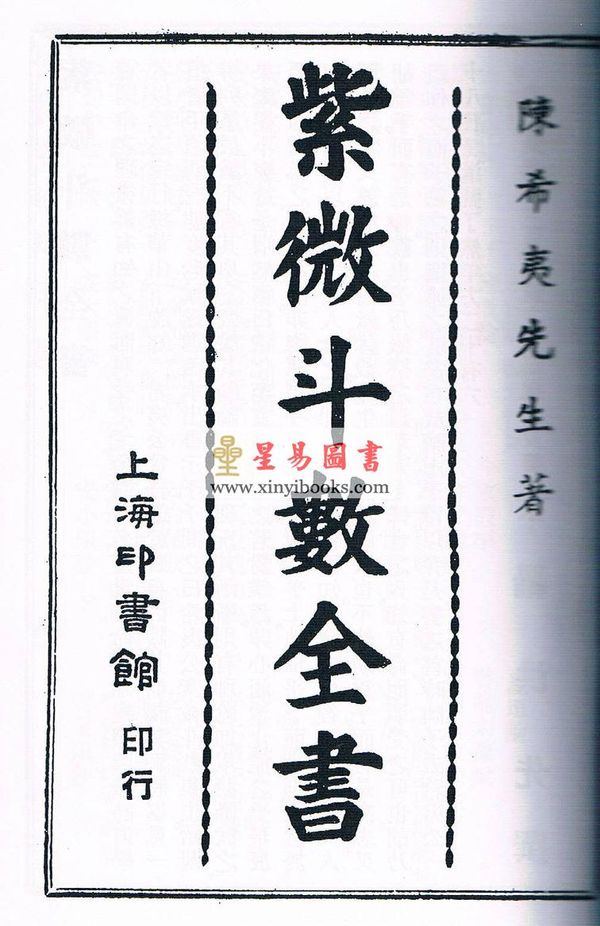 陳希夷先生著
紫微斗數全書
上海印書館 印行
星易圖書
www.xinyibooks.com